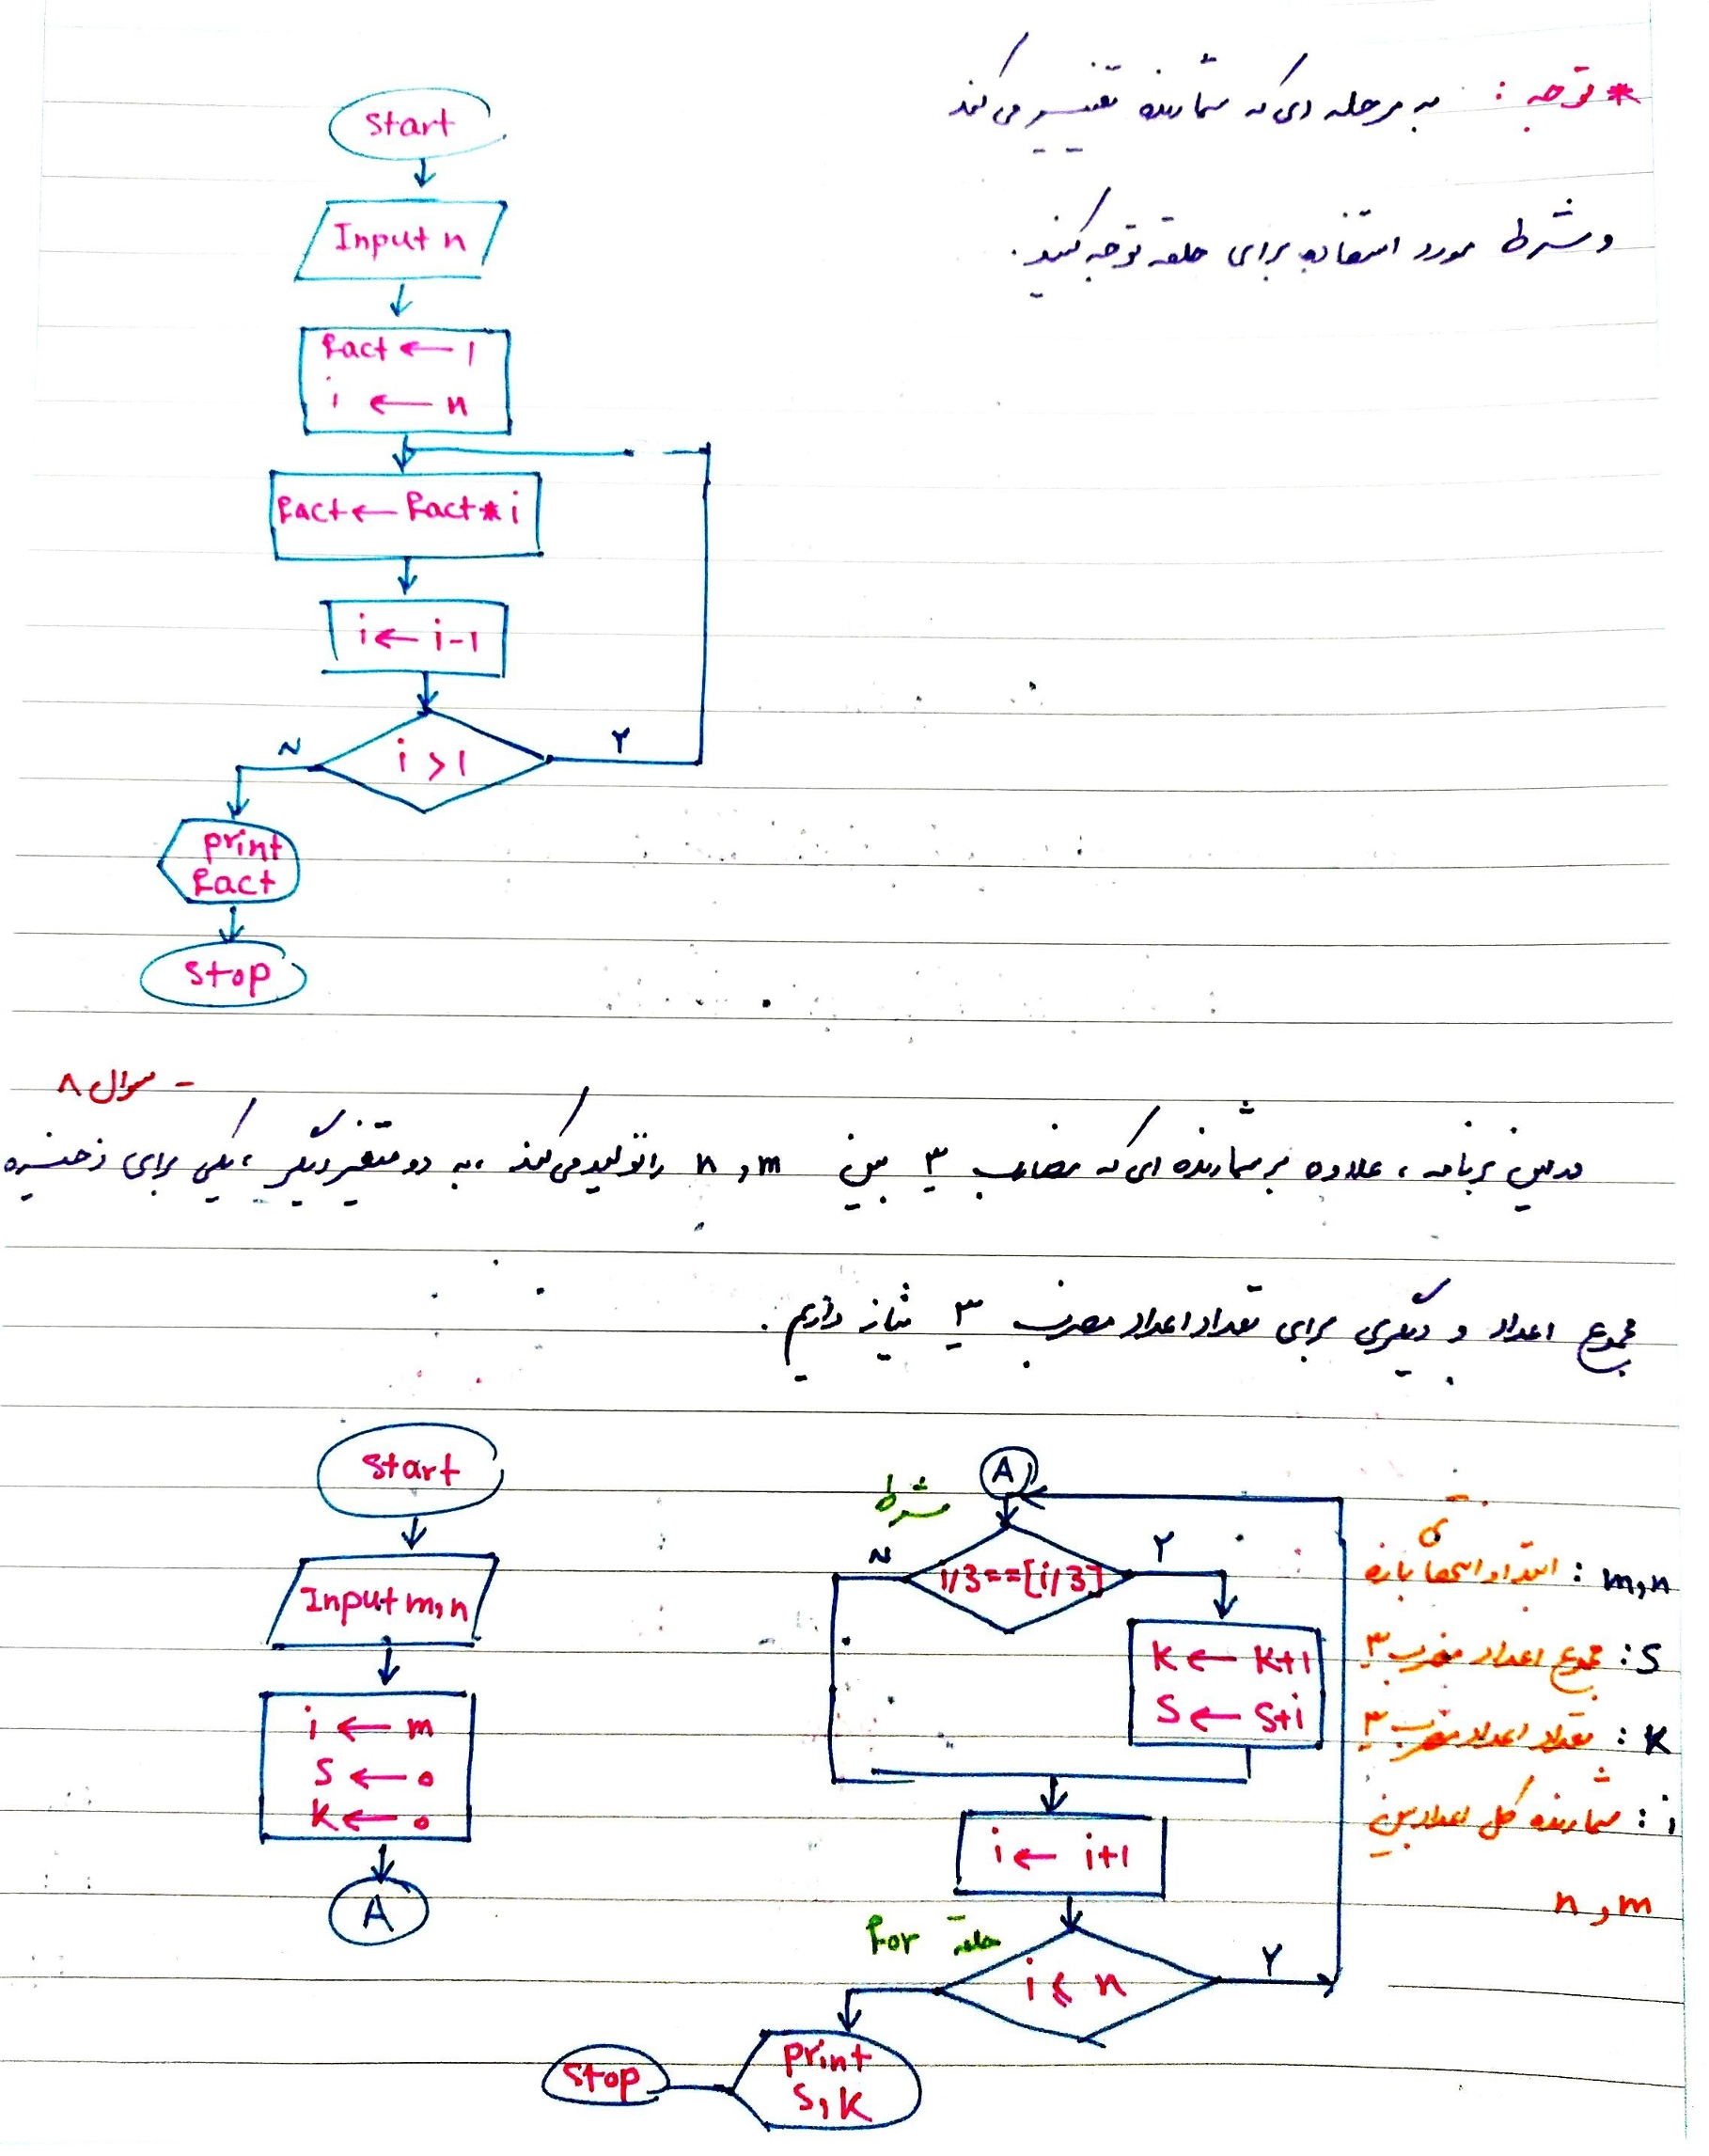 * توجه : به مرحله ای که شمارنده تغییر می کند
و شرط مورد استفاده برای حلقه توجه کنید.
Start
Input n
Fact ← 1
i ← n
Fact ← Fact * i
i ← i-1
i > 1
N
Y
print
Fact
Stop
- سوال ۸
در این برنامه ، علاوه بر شمارنده ای که مضارب ۳ بین m و n را تولید می کند ، به دو متغیر دیگر ، یکی برای ذخیره
مجموع اعداد و دیگری برای تعداد اعداد مضرب ۳ نیاز داریم .
Start
Input m,n
i ← m
S ← 0
K ← 0
A
A
شرط
i/3==[i/3]
N
Y
K ← K+1
S ← S+i
i ← i+1
حلقه For
i ≤ n
Y
print
S,K
Stop
m,n : ابتدا و انتهای بازه
S : مجموع اعداد مضرب ۳
K : تعداد اعداد مضرب ۳
i : شمارنده کل اعداد بین
m و n